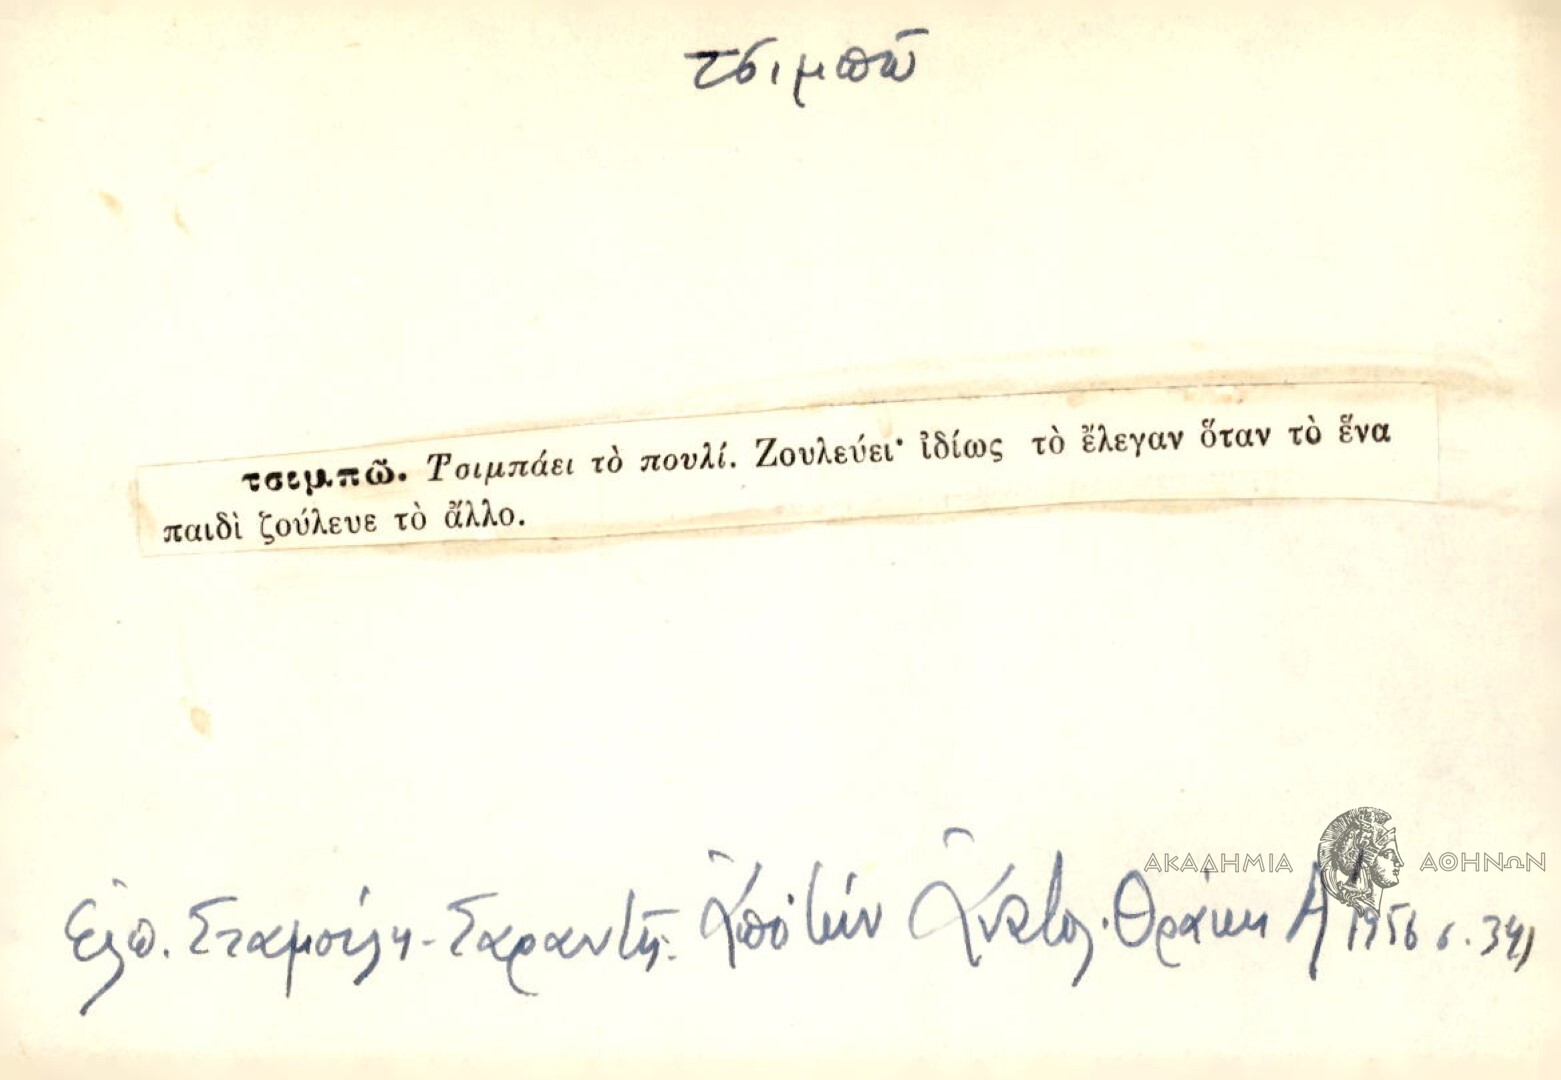 τσιμπῶ
τσιμπῶ. Τσιμπάει τὸ πουλί. Ζουλεύει· ἰδίως τὸ ἔλεγαν ὅταν τὸ ἕνα
παιδὶ ζούλευε τὸ ἄλλο.
ΑΚΑΔΗΜΙΑ ΑΘΗΝΩΝ
Ἐλπ. Σταμούλη-Σαραντῆ. Ἀπὸ τὴν Ἀνατολ. Θράκη Α΄ 1956 σ. 341